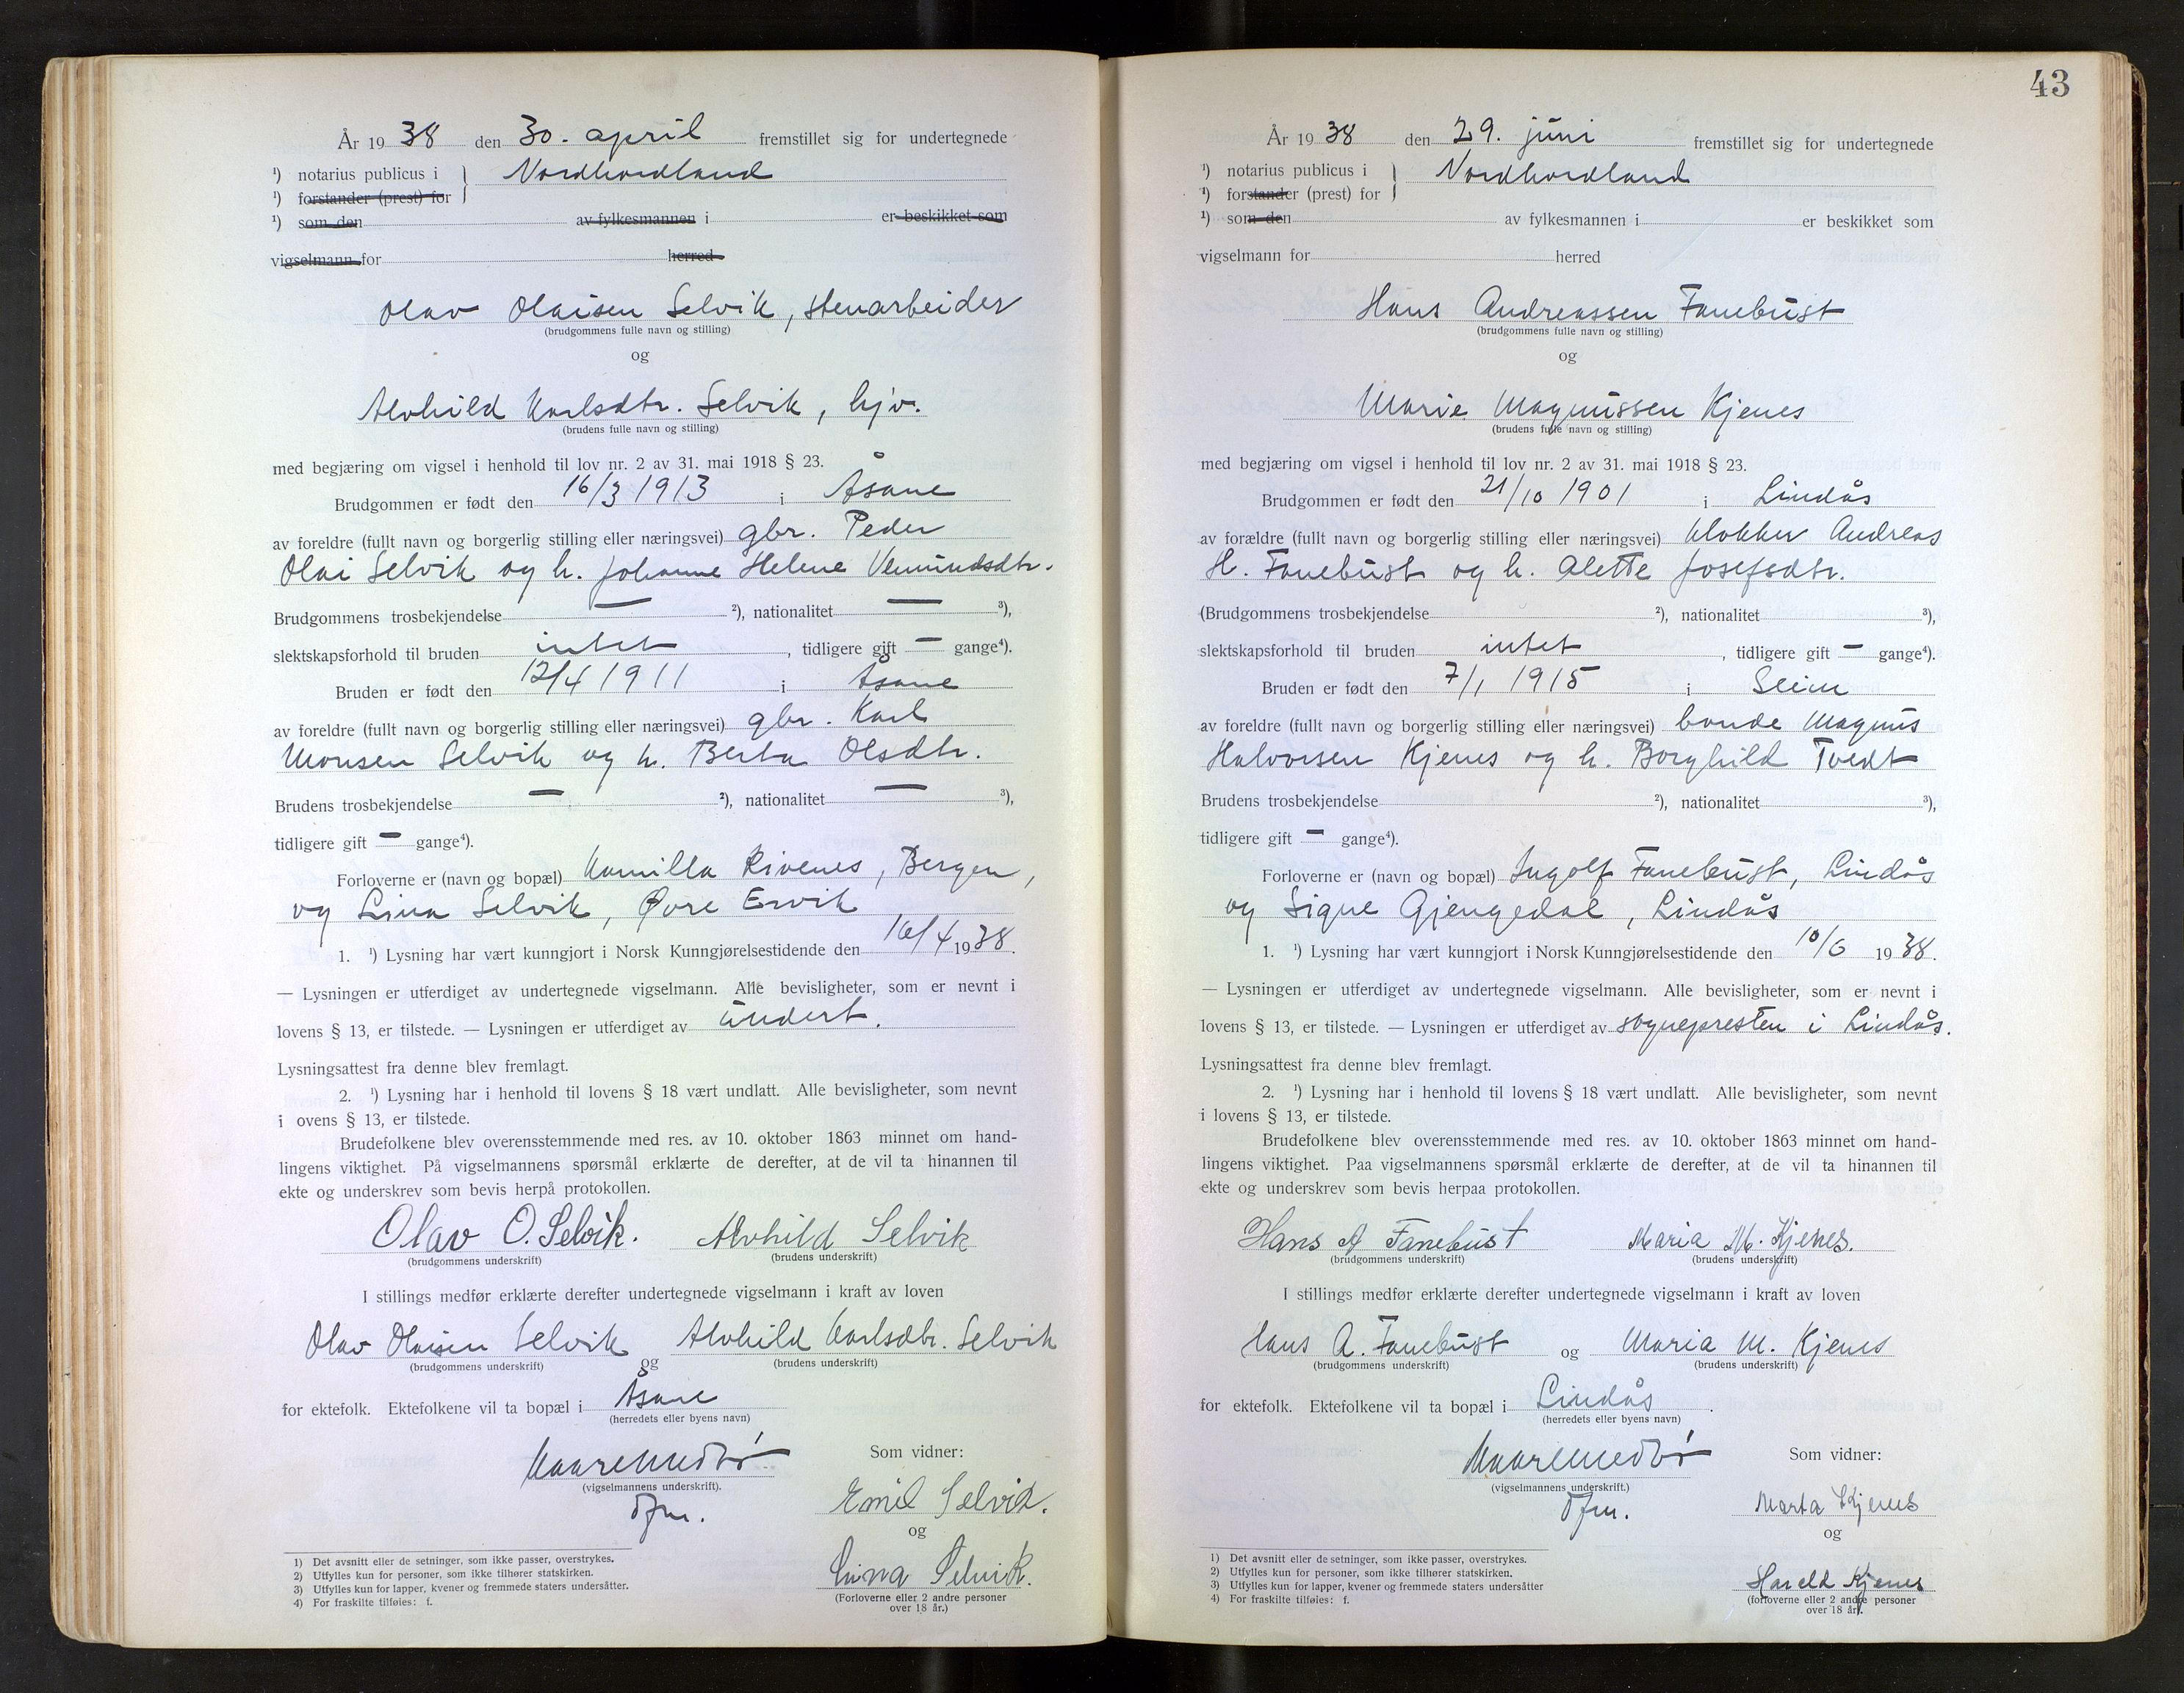 År 1938 den 30. april fremstillet sig for undertegnede
¹) notarius publicus i } Nordhordland
¹) forstander (prest) for
¹) som den av fylkesmannen i er beskikket som
vigselmann for herred
Olav Olaisen Selvik, stenarbeider
(brudgommens fulle navn og stilling)
og
Alvhild Karlsdtr. Selvik, hjv.
(brudens fulle navn og stilling)
med begjæring om vigsel i henhold til lov nr. 2 av 31. mai 1918 § 23.
Brudgommen er født den 16/3 1913 i Åsane
av foreldre (fullt navn og borgerlig stilling eller næringsvei) gbr. Peder
Olai Selvik og h. Johanne Helene Vemundsdtr.
Brudgommens trosbekjendelse — ²), nationalitet — ³),
slektskapsforhold til bruden intet, tidligere gift — gange⁴).
Bruden er født den 12/4 1911 i Åsane
av foreldre (fullt navn og borgerlig stilling eller næringsvei) gbr. Karl
Monsen Selvik og h. Berta Olsdtr.
Brudens trosbekjendelse — ²), nationalitet — ³),
tidligere gift — gange⁴).
Forloverne er (navn og bopæl) Kamilla Rivenes, Bergen,
og Lina Selvik, Øvre Ervik
1. ¹) Lysning har vært kunngjort i Norsk Kunngjørelsestidende den 16/4 1938.
— Lysningen er utferdiget av undertegnede vigselmann. Alle bevisligheter, som er nevnt i
lovens § 13, er tilstede. — Lysningen er utferdiget av undert.
Lysningsattest fra denne blev fremlagt.
2. ¹) Lysning har i henhold til lovens § 18 vært undlatt. Alle bevisligheter, som nevnt
i ovens § 13, er tilstede.
Brudefolkene blev overensstemmende med res. av 10. oktober 1863 minnet om hand-
lingens viktighet. På vigselmannens spørsmål erklærte de derefter, at de vil ta hinannen til
ekte og underskrev som bevis herpå protokollen.
Olav O. Selvik. Alvhild Selvik
(brudgommens underskrift) (brudens underskrift)
I stillings medfør erklærte derefter undertegnede vigselmann i kraft av loven
Olav Olaisen Selvik og Alvhild Karlsdtr. Selvik
(brudgommens underskrift) (brudens underskrift)
for ektefolk. Ektefolkene vil ta bopæl i Åsane
(herredets eller byens navn)
Som vidner:
(vigselmannens underskrift).
Emil Selvik.
og
Lina Selvik.
(Forloverne eller 2 andre personer
over 18 år.)
1) Det avsnitt eller de setninger, som ikke passer, overstrykes.
2) Utfylles kun for personer, som ikke tilhører statskirken.
3) Utfylles kun for lapper, kvener og fremmede staters undersåtter.
4) For fraskilte tilføies: f.
43
År 1938 den 29. juni fremstillet sig for undertegnede
¹) notarius publicus i } Nordhordland
¹) forstander (prest) for
¹) som den av fylkesmannen i er beskikket som
vigselmann for herred
Hans Andreassen Fanebust
(brudgommens fulle navn og stilling)
og
Marie Magnussen Kjenes
(brudens fulle navn og stilling)
med begjæring om vigsel i henhold til lov nr. 2 av 31. mai 1918 § 23.
Brudgommen er født den 21/10 1901 i Lindås
av forældre (fullt navn og borgerlig stilling eller næringsvei) klokker Andreas
H. Fanebust og h. Alette Josefsdtr.
(Brudgommens trosbekjendelse ²), nationalitet ³),
slektskapsforhold til bruden intet, tidligere gift — gange⁴).
Bruden er født den 7/1 1915 i Seim
av foreldre (fullt navn og borgerlig stilling eller næringsvei) bonde Magnus
Halvorsen Kjenes og h. Borghild Tvedt
Brudens trosbekjendelse ²), nationalitet ³),
tidligere gift — gange⁴).
Forloverne er (navn og bopæl) Ingolf Fanebust, Lindås
og Signe Gjengedal, Lindås
1. ¹) Lysning har vært kunngjort i Norsk Kunngjørelsestidende den 10/6 1938.
— Lysningen er utferdiget av undertegnede vigselmann. Alle bevisligheter, som er nevnt i
lovens § 13, er tilstede. — Lysningen er utferdiget av sognepresten i Lindås.
Lysningsattest fra denne blev fremlagt.
2. ¹) Lysning har i henhold til lovens § 18 vært undlatt. Alle bevisligheter, som nevnt
i lovens § 13, er tilstede.
Brudefolkene blev overensstemmende med res. av 10. oktober 1863 minnet om hand-
lingens viktighet. Paa vigselmannens spørsmål erklærte de derefter, at de vil ta hinannen til
ekte og underskrev som bevis herpaa protokollen.
Hans A Fanebust Maria M. Kjenes.
(brudgommens underskrift) (brudens underskrift)
I stillings medfør erklærte derefter undertegnede vigselmann i kraft av loven
Hans A. Fanebust og Maria M. Kjenes
(brudgommens underskrift) (brudens underskrift)
for ektefolk. Ektefolkene vil ta bopæl i Lindås.
(herredets eller byens navn)
Som vidner:
(vigselmannens underskrift.)
Marta Kjenes
og
Harald Kjenes
(forloverne eller 2 andre personer
over 18 år).
1) Det avsnitt eller de setninger, som ikke passer, overstrykes.
2) Utfylles kun for personer, som ikke tilhører statskirken.
3) Utfylles kun for lapper, kvener og fremmede staters undersåtter
4) For fraskilte tilføies: f.